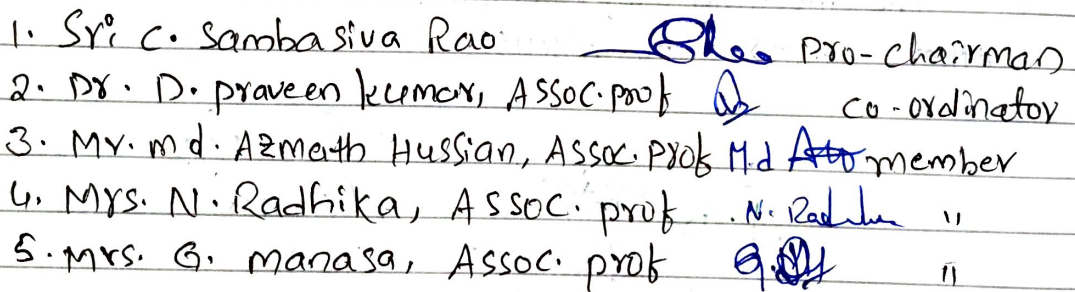 1. Sri C. Sambasiva Rao Pro-Chairman
2. Dr. D. praveen kumar, Assoc. prof co-ordinator
3. Mr. md. Azmath Hussian, Assoc. prof M.d member
4. Mrs. N. Radhika, Assoc. prof N. "
5. Mrs. G. manasa, Assoc. prof G. "